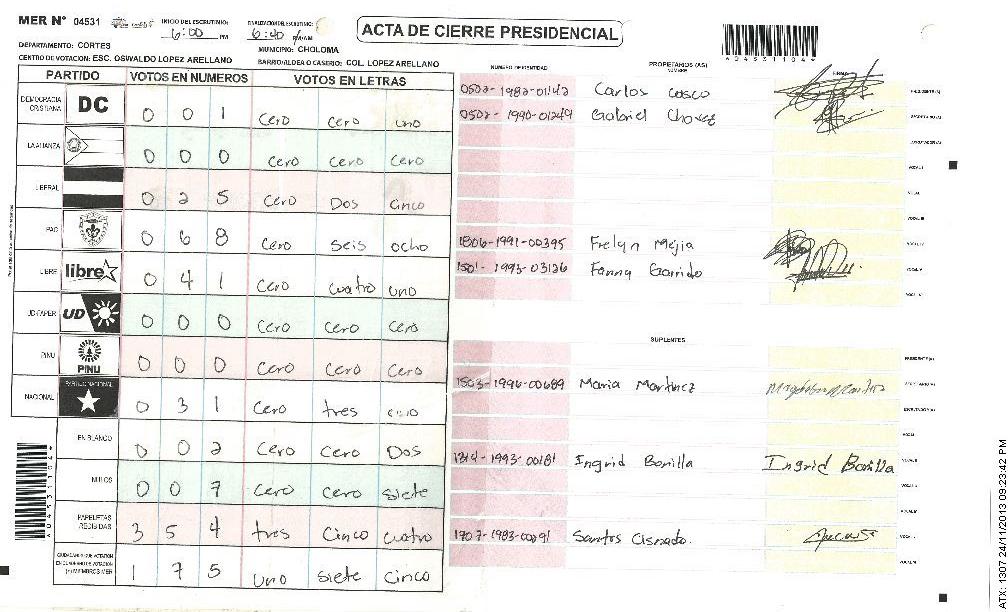 MER N° 04531
INICIO DEL ESCRUTINIO: 6:00 PM
FINALIZACION DEL ESCRUTINIO: 6:40 PM/AM
ACTA DE CIERRE PRESIDENCIAL
DEPARTAMENTO: CORTES
MUNICIPIO: CHOLOMA
CENTRO DE VOTACION: ESC. OSWALDO LOPEZ ARELLANO
BARRIO/ALDEA O CASERIO: COL. LOPEZ ARELLANO
*04531104*
PARTIDO VOTOS EN NUMEROS VOTOS EN LETRAS
DEMOCRACIA CRISTIANA DC 0 0 1 cero cero uno
LA ALIANZA 0 0 0 cero cero cero
LIBERAL 0 2 5 cero Dos cinco
PAC 0 6 8 cero seis ocho
LIBRE libre 0 4 1 cero cuatro uno
UD-FAPER UD 0 0 0 cero cero cero
PINU PINU 0 0 0 cero cero cero
NACIONAL PARTIDO NACIONAL 0 3 1 cero tres
EN BLANCO 0 0 2 cero cero Dos
NULOS 0 0 7 cero cero siete
PAPELETAS RECIBIDAS 3 5 4 tres cinco cuatro
CIUDADANOS QUE VOTARON EN CUADERNO DE VOTACION (+) MIEMBROS MER 1 7 5 uno siete cinco
NUMERO DE IDENTIDAD PROPIETARIOS (AS) NOMBRE FIRMA
0502-1982-01142 Carlos Cosco PRESIDENTE(A)
0502-1990-01249 Gabriel Chavez SECRETARIO(A)
ESCRUTADOR(A)
VOCAL I
VOCAL II
VOCAL III
1806-1991-00395 Frelyn Mejia VOCAL IV
1501-1993-03126 Fanny Garrido VOCAL V
VOCAL VI
SUPLENTES
PRESIDENTE(A)
1503-1996-00689 Maria Martinez SECRETARIO(A)
ESCRUTADOR(A)
VOCAL I
1314-1993-00181 Ingrid Bonilla Ingrid Bonilla VOCAL II
1707-1983-00891 Santos Cisnado.
ATX: 1307 24/11/2013 09:23:42 PM